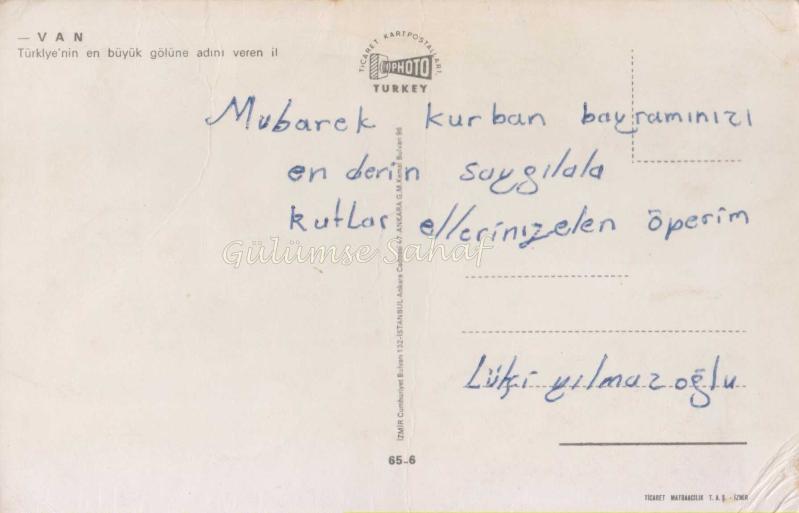 — VAN
Türkiye'nin en büyük gölüne adını veren il
TİCARET KARTPOSTALLARI,
PHOTO
TURKEY
Mubarek kurban bayramınızı
en derin saygılala
kutlar ellerinizelen öperim
Gülümse Sahaf
İZMİR Cumhuriyet Bulvarı 132-İSTANBUL Ankara Caddesi 47-ANKARA G.M.Kemal Bulvarı 96
yılmazoğlu
65-6
TİCARET MATBAACILIK T. A. Ş. - İZMİR